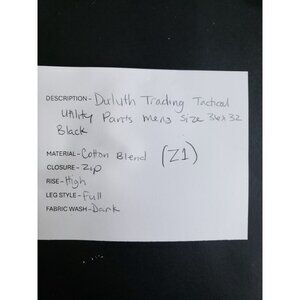 DESCRIPTION- Duluth Trading Tactical
Utility Pants mens size 36x32
Black
MATERIAL- Cotton Blend (Z1)
CLOSURE- Zip
RISE- High
LEG STYLE- Full
FABRIC WASH- Dark